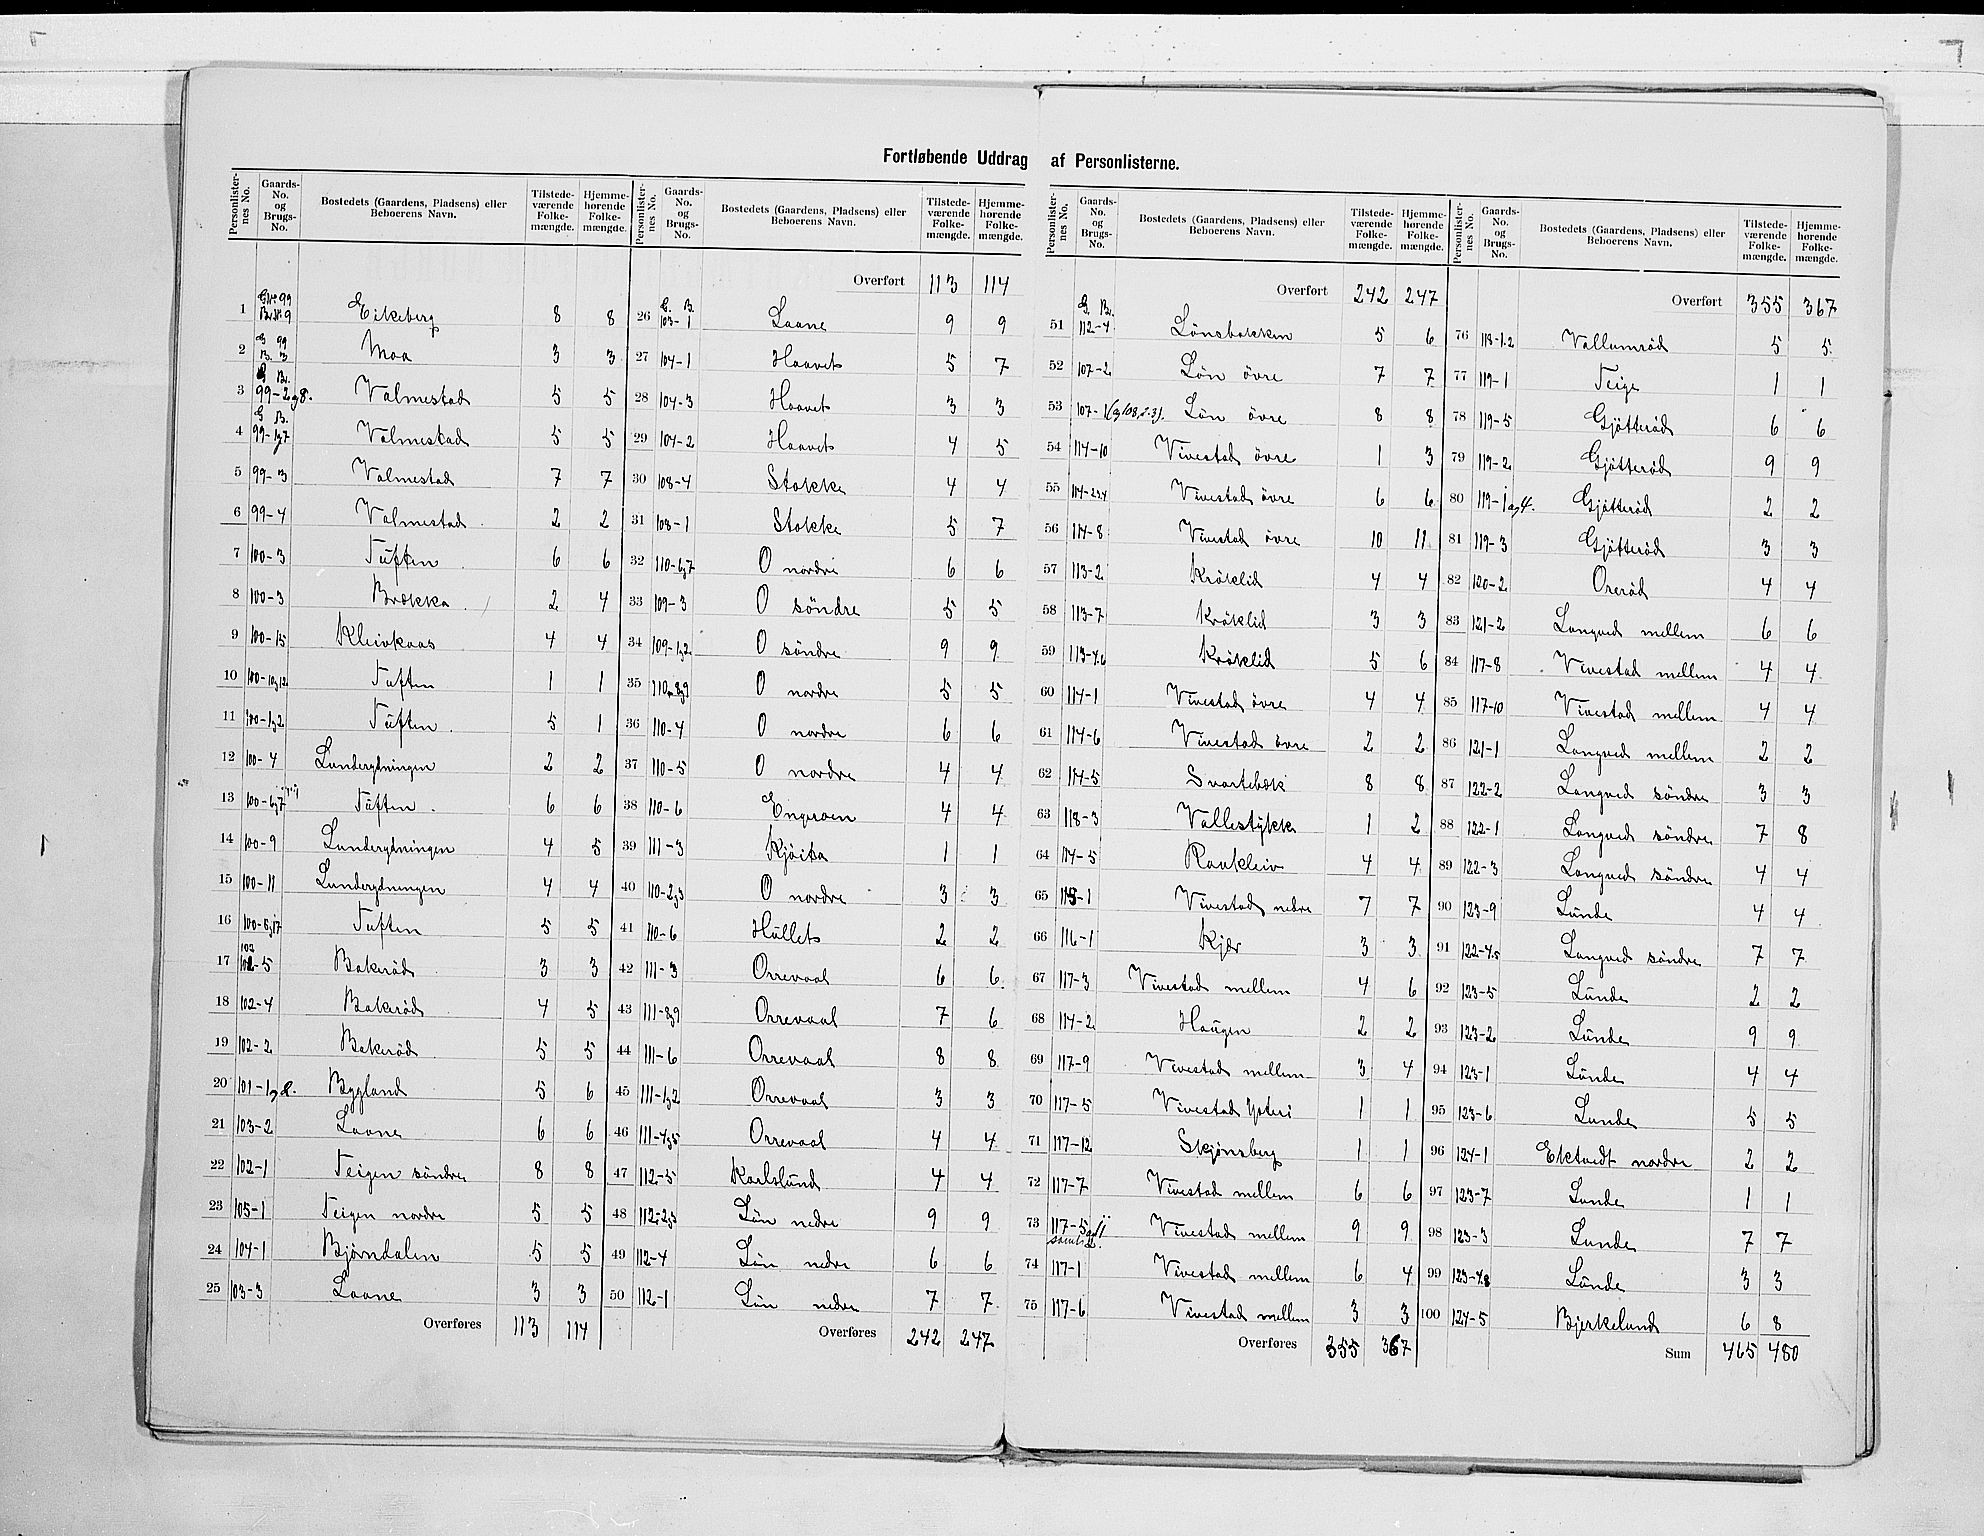 Fortløbende Uddrag af Personlisterne.
Personlister-nes No. Gaards-No. og Brugs-No. Bostedets (Gaardens, Pladsens) eller Beboerens Navn. Tilstede-værende Folke-mængde. Hjemme-hørende Folke-mængde.
1 GNr 99 BrNr 9 Eikeberg 8 8
2 G 99 B. 3 Moa 3 3
3 G Br. 99-2og8. Valmestad 5 5
4 G B. 99-1og7 Valmestad 5 5
5 99-3 Valmestad 7 7
6 99-4 Valmestad 2 2
7 100-3 Tuften 6 6
8 100-3 Brekka 2 4
9 100-15 Kleivkaas 4 4
10 100-10og12 Tuften 1 1
11 100-1og2 Tuften 5 1
12 100-4 Lunderydningen 2 2
13 100-6og7 Tuften 6 6
14 100-9 Lunderydningen 4 5
15 100-11 Lunderydningen 4 4
16 Tuften 5 5
17 102-5 Bakerød 3 3
18 102-4 Bakerød 4 5
19 102-2 Bakerød 5 5
20 101-1og2. Bygland 5 6
21 103-2 Laane 6 6
22 102-1 Teigen søndre 8 8
23 105-1 Teigen nordre 5 5
24 104-1 Bjørndalen 5 5
25 103-3 Laane 3 3
Overføres 113 114
Personlister-nes No. Gaards-No. og Brugs-No. Bostedets (Gaardens, Pladsens) eller Beboerens Navn. Tilstede-værende Folke-mængde. Hjemme-hørende Folke-mængde.
Overført 113 114
26 G. B. 103-1 Laane 9 9
27 104-1 Haavet 5 7
28 104-3 Haavet 3 3
29 104-2 Haavet 4 5
30 108-4 Stokke 4 4
31 108-1 Stokke 5 7
32 110-6og7 O nordre 6 6
33 109-3 O söndre 5 5
34 109-1og2 O söndre 9 9
35 O nordre 5 5
36 110-4 O nordre 6 6
37 110-5 O nordre 4 4
38 110-6 Engeroen 4 4
39 111-3 Kjöita 1 1
40 110-2og3 O nordre 3 3
41 110-6 Hullet 2 2
42 111-3 Orrevaal 6 6
43 111-8og9 Orrevaal 7 6
44 111-6 Orrevaal 8 8
45 111-1og2 Orrevaal 3 3
46 111-4og5 Orrevaal 4 4
47 112-5 Karlslund 4 4
48 112-2og3 Lön nedre 9 9
49 112-4 Lön nedre 6 6
50 112-1 Lön nedre 7 7
Overføres 242 247
Personlister-nes No. Gaards-No. og Brugs-No. Bostedets (Gaardens, Pladsens) eller Beboerens Navn. Tilstede-værende Folke-mængde. Hjemme-hørende Folke-mængde.
Overført 242 247
51 G. Br. 112-4 Lönsbakken 5 6
52 107-2 Lön övre 7 7
53 107-1(og108,2.3). Lön övre 8 8
54 114-10 Vivestad övre 1 3
55 Vivestad övre 6 6
56 114-8 Vivestad övre 10 11
57 113-2 Kröklid 4 4
58 113-7 Kröklid 3 3
59 113-4.6 Kröklid 5 6
60 114-1 Vivestad övre 4 4
61 114-6 Vivestad övre 2 2
62 114-5 Svartebæk 8 8
63 118-3 Vallestykke 1 2
64 114-5 Raukleiv 4 4
65 115-1 Vivestad nedre 7 7
66 116-1 Kjær 3 3
67 117-3 Vivestad mellem 4 6
68 114-2 Haugen 2 2
69 117-9 Vivestad mellem 3 4
70 117-5 Vivestad Ysteri 1 1
71 117-12 Skjönsberg 1 1
72 117-7 Vivestad mellem 6 6
73 117-5og11 samt 2. Vivestad mellem 9 9
74 117-1 Vivestad mellem 6 4
75 117-6 Vivestad mellem 3 3
Overføres 355 367
Personlister-nes No. Gaards-No. og Brugs-No. Bostedets (Gaardens, Pladsens) eller Beboerens Navn. Tilstede-værende Folke-mængde. Hjemme-hørende Folke-mængde.
Overført 355 367
76 118-1.2 Vallumröd 5 5
77 119-1 Teige 1 1
78 119-5 Gjötteröd 6 6
79 119-2 Gjötteröd 9 9
80 119-1og4. Gjötteröd 2 2
81 119-3 Gjötteröd 3 3
82 120-2 Oreröd 4 4
83 121-2 Langved mellem 6 6
84 117-8 Vivestad mellem 4 4
85 117-10 Vivestad mellem 4 4
86 121-1 Langved mellem 2 2
87 122-2 Langved söndre 3 3
88 122-1 Langved söndre 7 8
89 122-3 Langved söndre 4 4
90 123-9 Lunde 4 4
91 122-4.5 Langved söndre 7 7
92 123-5 Lunde 2 2
93 123-2 Lunde 9 9
94 123-1 Lunde 4 4
95 123-6 Lunde 5 5
96 124-1 Ektvedt nordre 2 2
97 123-7 Lunde 1 1
98 123-3 Lunde 7 7
99 123-4.8 Lunde 3 3
100 124-5 Bjerkelund 6 8
Sum 465 480